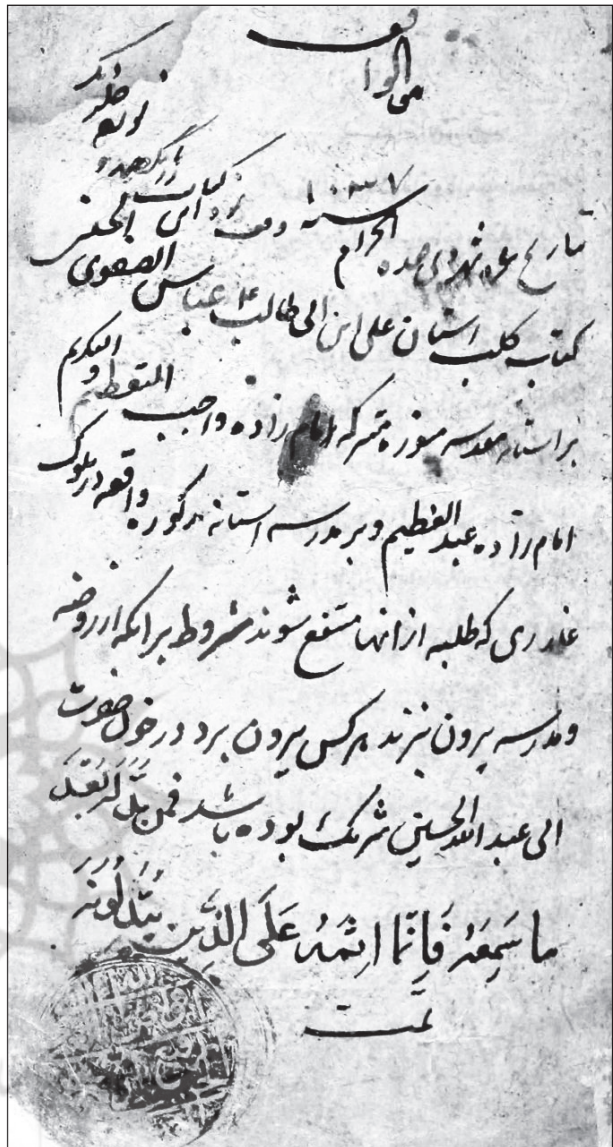 هو الواقف
تاریخ غره شهر ذی حجه الحرام سنه ۱۰۳۷ وقف نمود این
کتاب کلب استان علی ابن ابی طالب ع عباس الصفوی
بر استانه مقدسه منوره متبرکه امام زاده واجب التعظیم و التکریم
امام زاده عبد العظیم و بر مدرسه استانه مذکوره واقعه در بلوک
که طلبه از انها منتفع شوند مشروط بر انکه از روضه
و مدرسه بیرون نبرند هر کس بیرون برد در خون حضرت
ابی عبد الله الحسین شریک بوده باشد فمن بدله بعد
ما سمعه فانما اثمه علی الذین یبدلونه
تمت